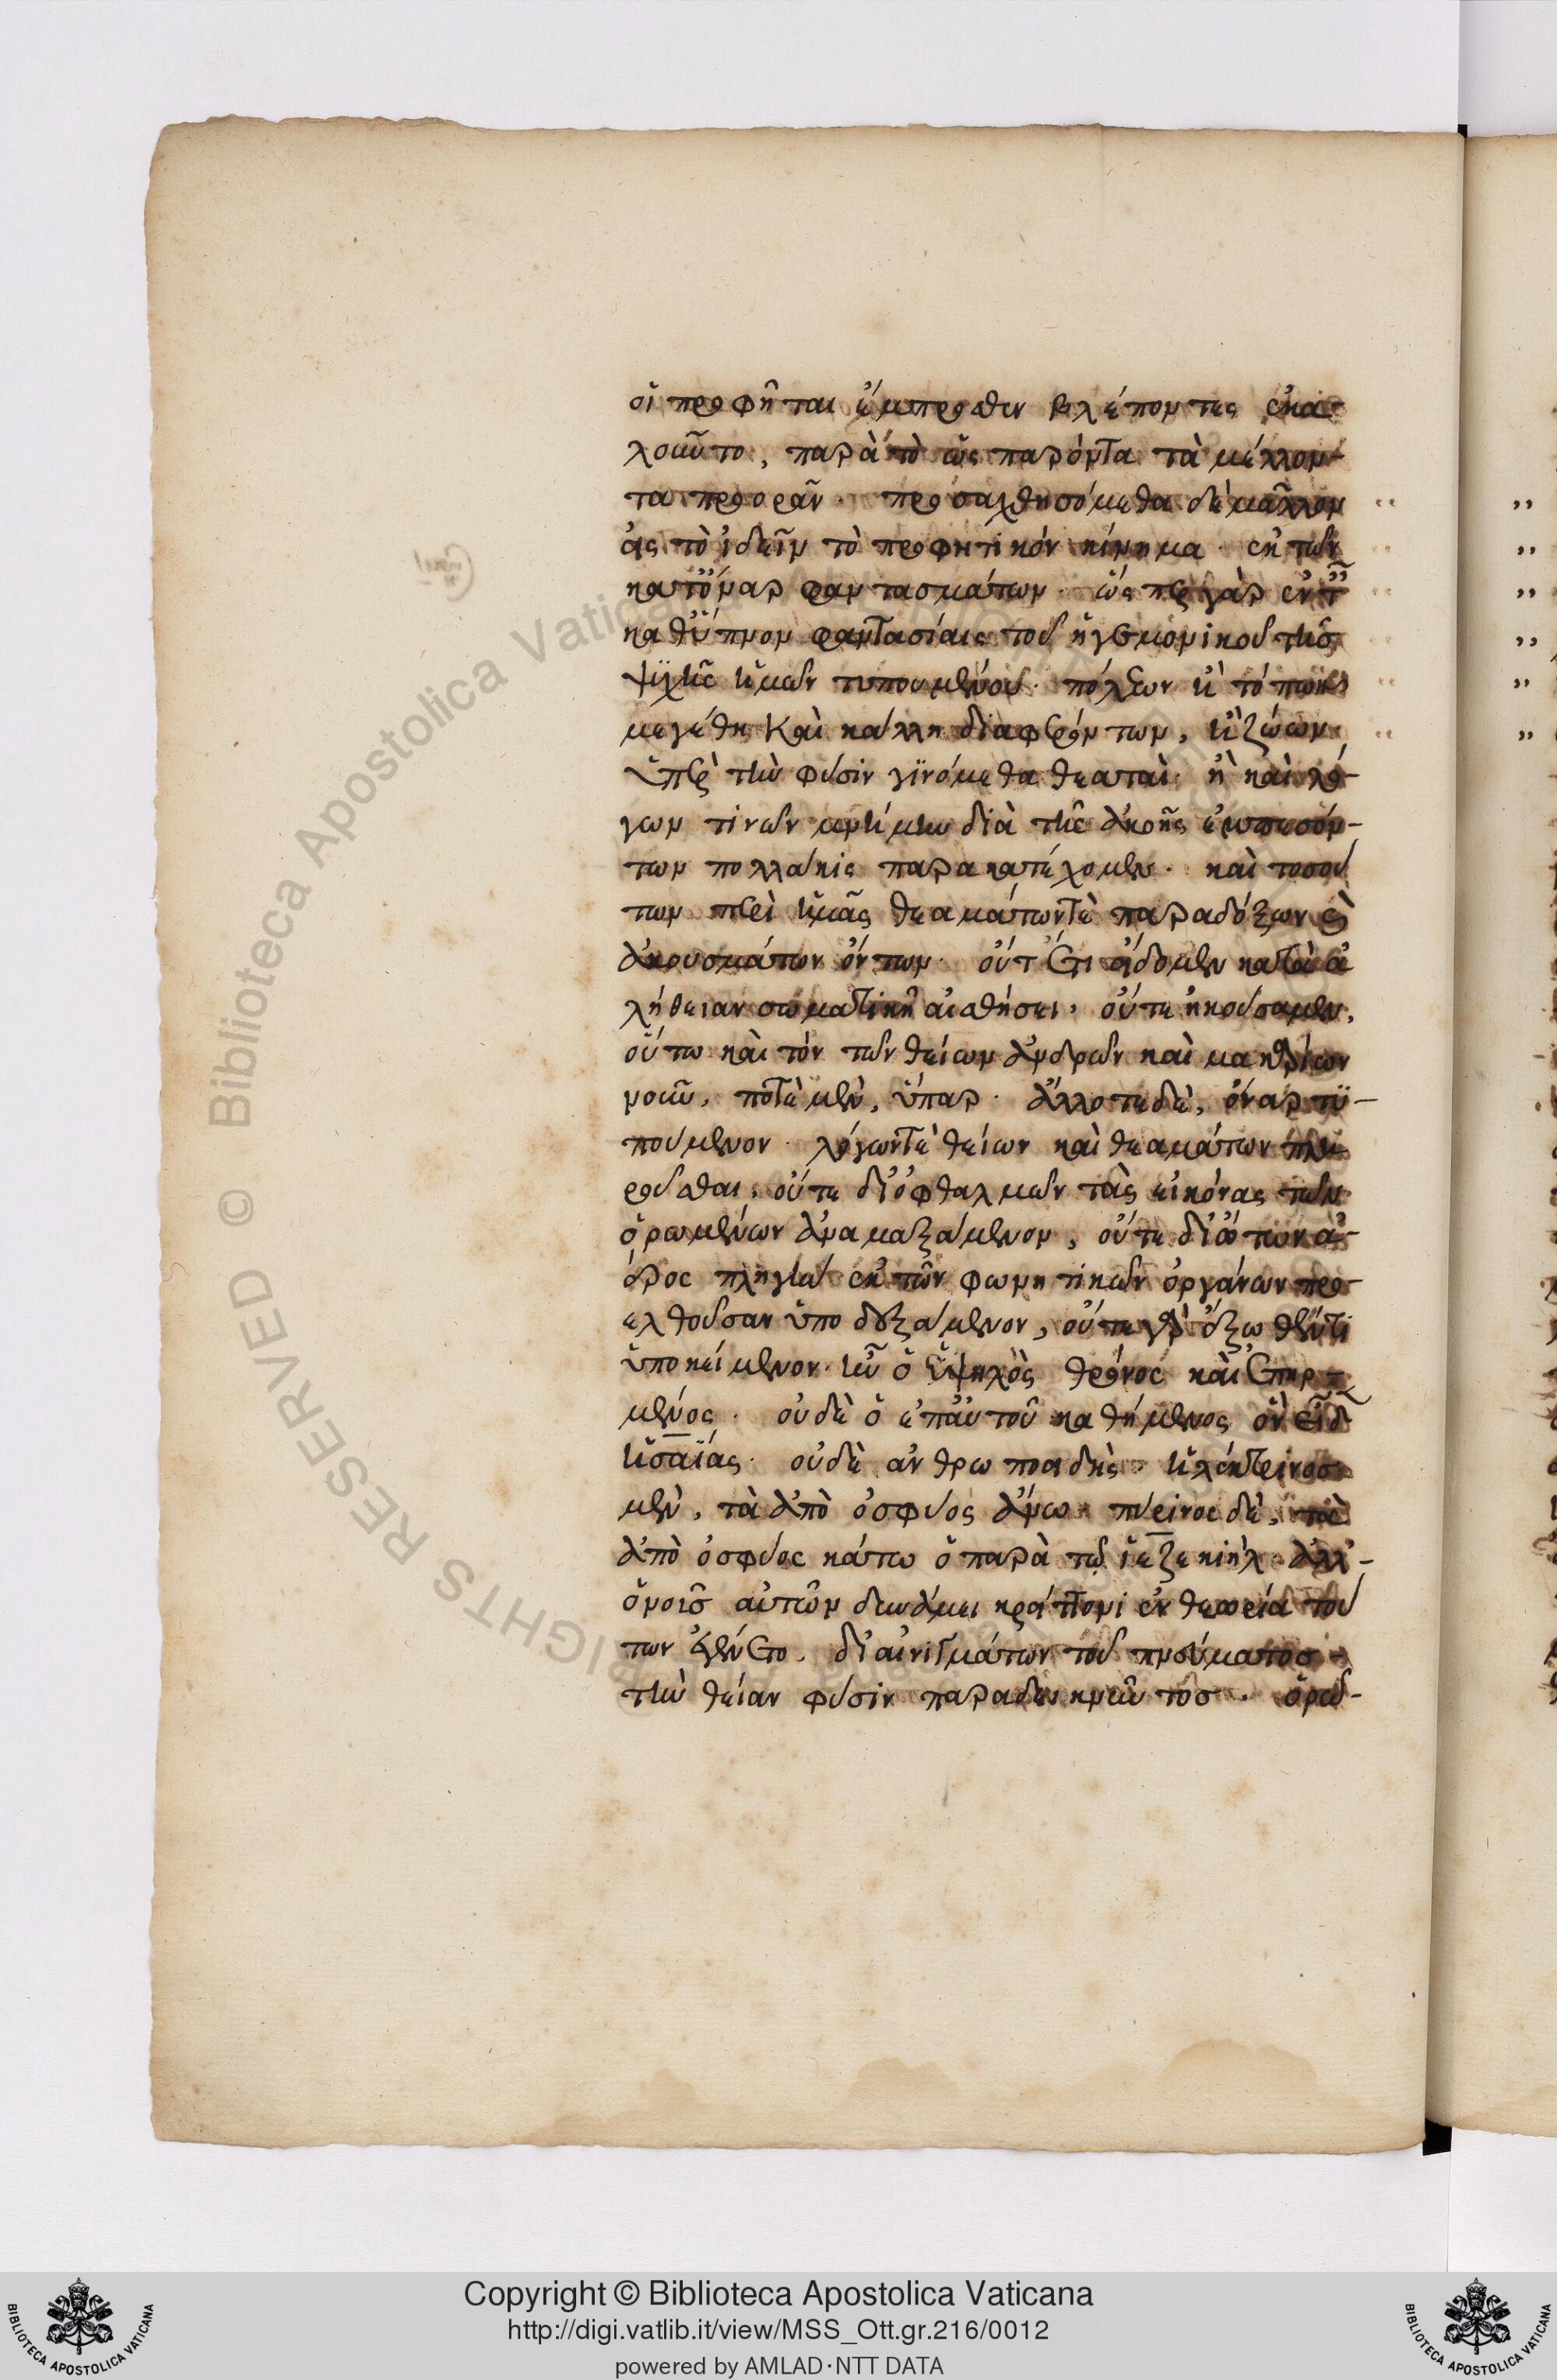 οἱ προφῆται ἔμπροσθεν βλέποντες ἐκα-
λοῦντο, παρὰ τὸ ὡς παρόντα τὰ μέλλον-
τα προορᾶν. προσαχθησόμεθα δὲ μᾶλλον
εἰς τὸ ἰδεῖν τὸ προφητικόν κίνημα. ἐκ τῶν
κατ' ὄναρ φαντασμάτων. ὥσπερ γὰρ ἐν τ
καθ' ὕπνον φαντασίαις τοῦ ἡγεμονικοῦ τῆς
ψυχῆς ἡμῶν τυπουμένου. πόλεων κ τόπων
μεγέθη καὶ κάλλη διαφερόντων, κ ζώων
ὑπὲρ τὴν φύσιν γινόμεθα θεαταὶ. ἢ καὶ λό-
γων τινῶν μνήμην διὰ τῆς ἀκοῆς ἐμπεσόν-
των πολλάκις παρακατέχομεν. καὶ τοσού
των περὶ ἡμᾶς θεαμάτων τὲ παραδόξων καὶ
ἀκουσμάτων ὄντων. οὔτέ τι εἴδομεν κατὰ ἀ
λήθειαν σωματικῆ αἰσθήσει, οὔτε ἠκούσαμεν,
οὕτω καὶ τόν τῶν θείων ἀνδρῶν καὶ μακαρίων
νοῦν, ποτὲ μὲν, ὕπαρ. ἄλλοτε δὲ, ὄναρ τυ-
πούμενον. λόγων τὲ θείων καὶ θεαμάτων πλη
ροῦσθαι, οὔτε δι' ὀφθαλμῶν τὰς εἰκόνας τῶν
ὁρωμένων ἀναμαξάμενον, οὔτε δι' ὤτων ἀ-
έρος πληγὴν ἐκ τῶν φωνητικῶν ὀργάνων προ-
ελθοῦσαν ὑποδεξάμενον, οὔτε γὰρ ἔξωθέν τι
ὑποκείμενον. ἦν ὁ ὑψηλὸς θρόνος καὶ ἐπηρ
μένος. οὐδὲ ὁ ἐπ' αὐτοῦ καθήμενος ὃν εἶδ
ἡσαΐας. οὐδὲ ανθρωποειδὴς. ἠλέκτρινος
μὲν, τὰ ἀπὸ ὀσφύος ἄνω. πύρινος δὲ, τὰ
ἀπὸ ὀσφύος κάτω ὁ παρὰ τῷ ἰεζεκιὴλ. ἀλλ'-
ὁμοις αὐτῶν δυνάμει κρείττονι ἐν θεωρία τού
των ἐγένετο. δι' αἰνιγμάτων τοῦ πνεύματος
τὴν θείαν φύσιν παραδεικνοῦντος. ὁροῦ-